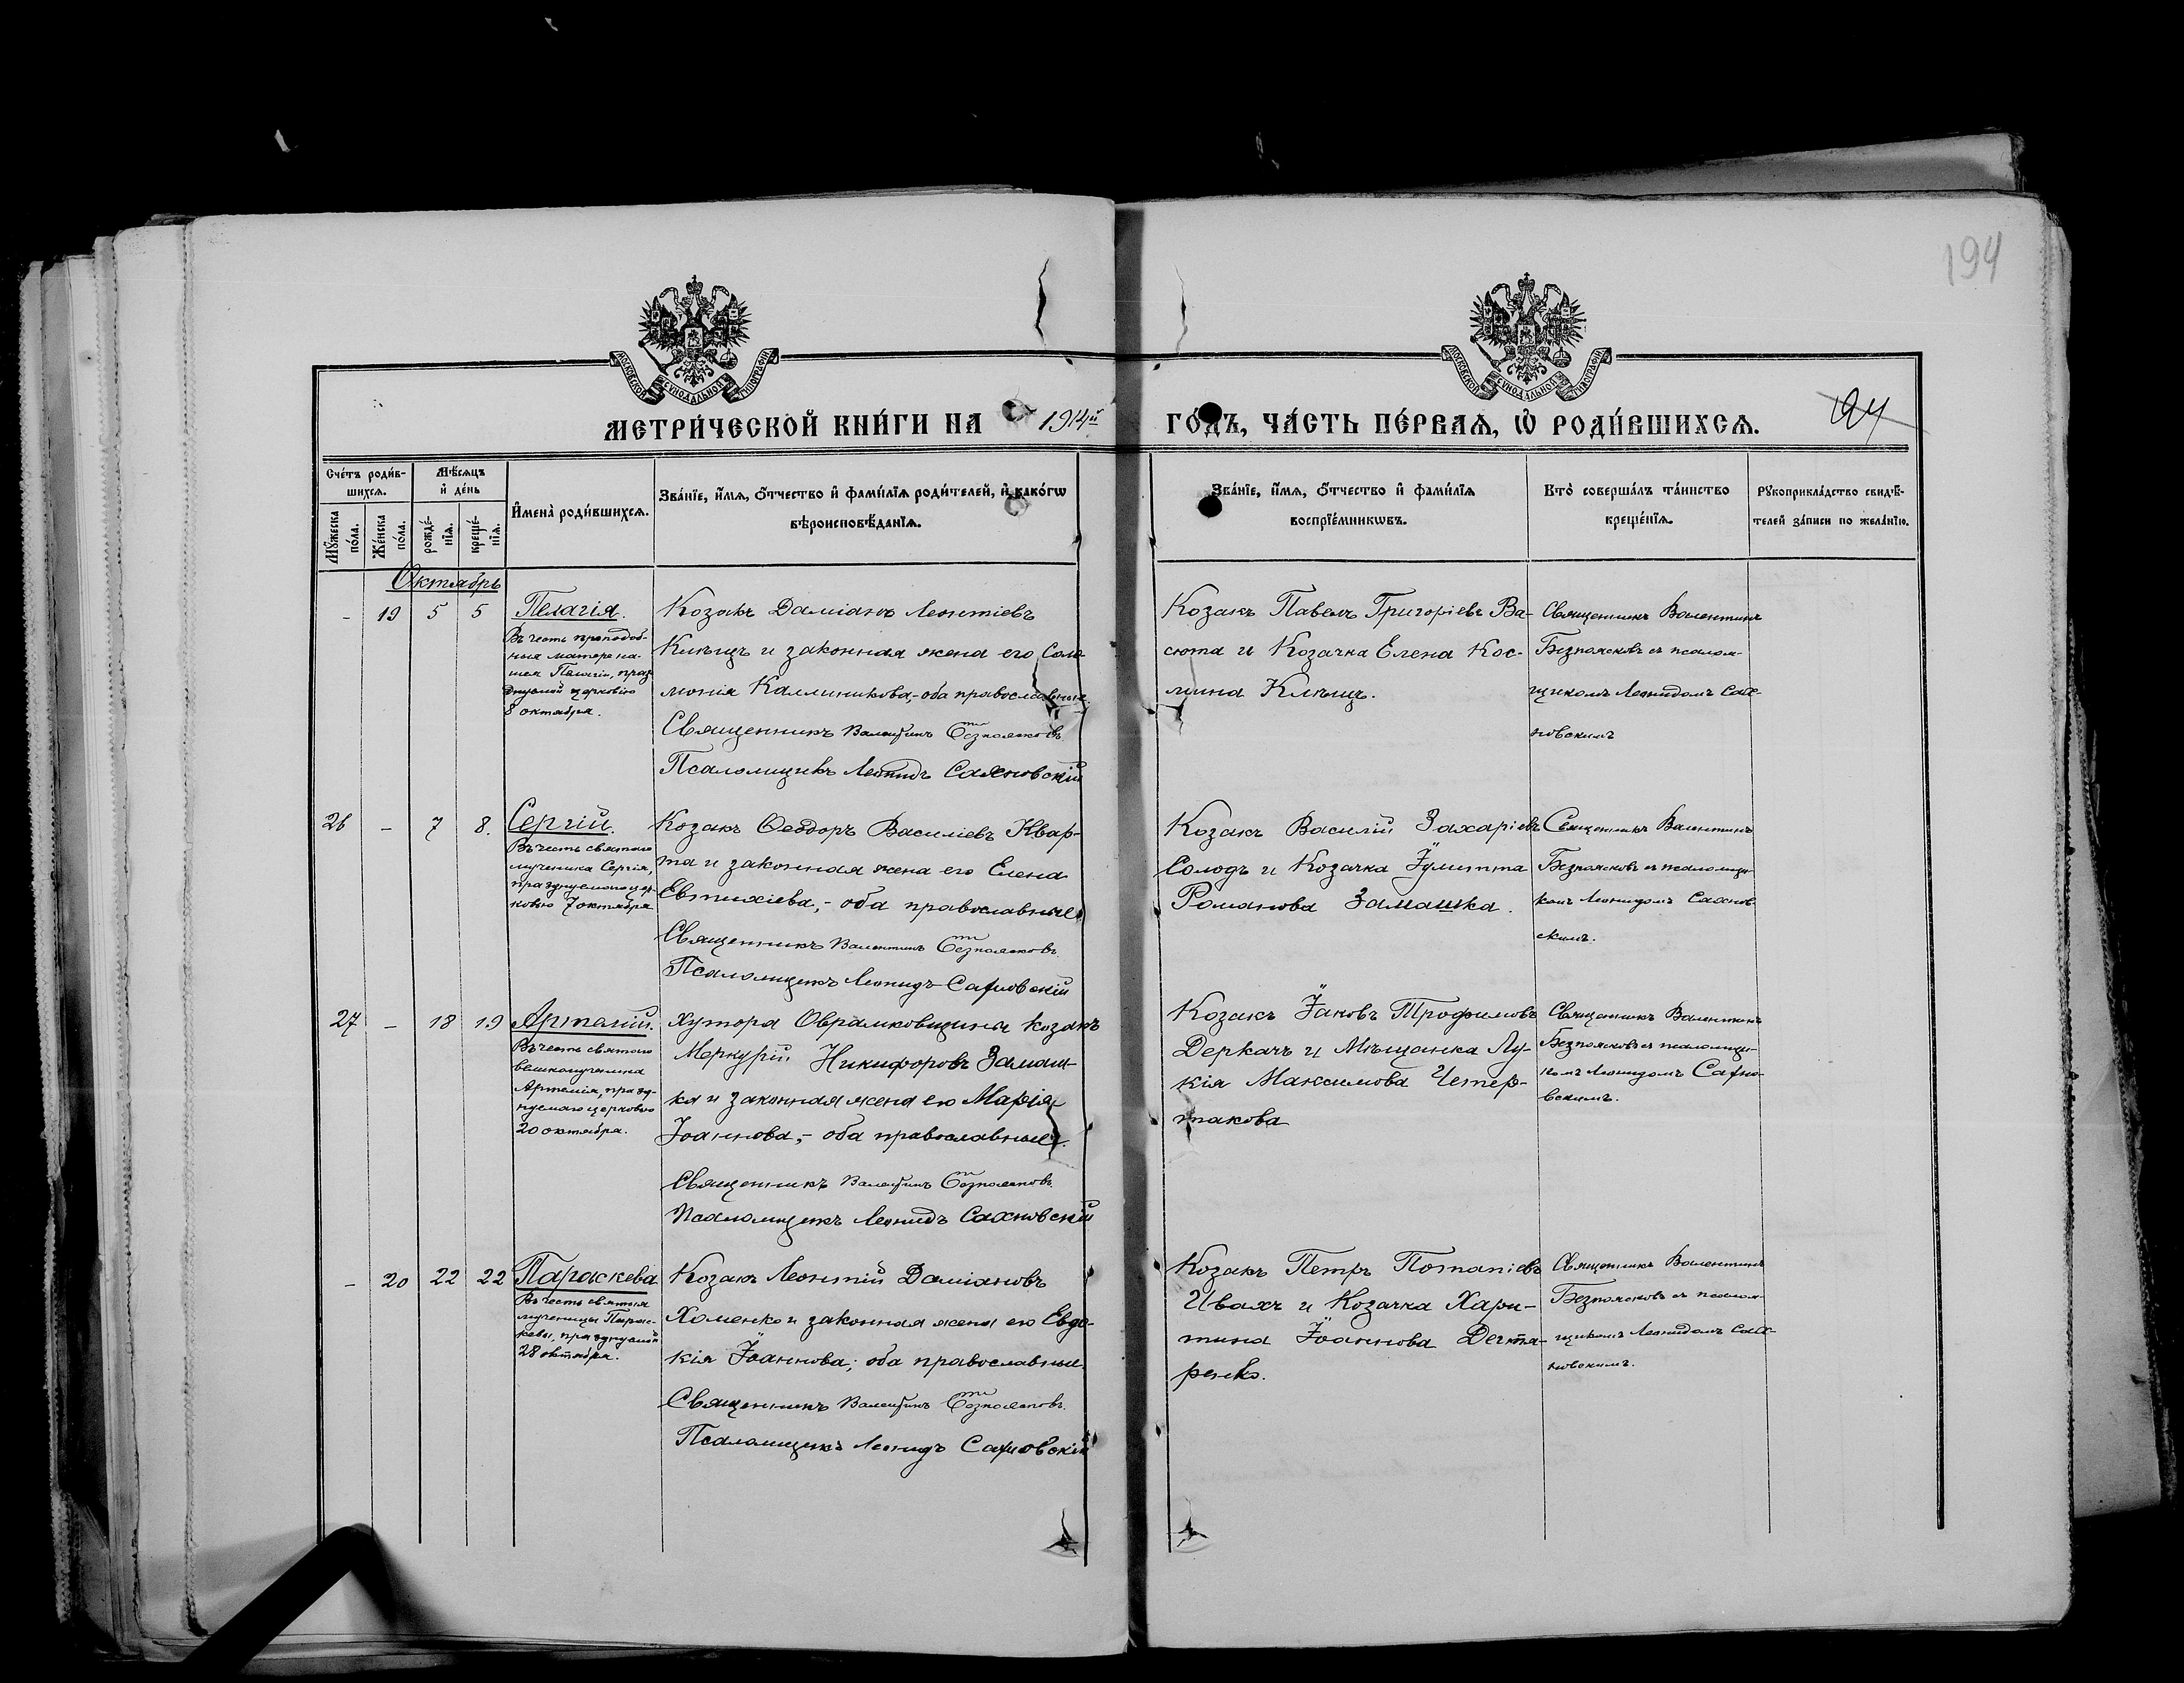 194
МОСКОВСКОЙ СѴНОДАЛЬНОЙ ТИПОГРАФІИ
МОСКОВСКОЙ СѴНОДАЛЬНОЙ ТИПОГРАФІИ
МЕТРИ́ЧЕСКОЙ КНИ́ГИ НА 1914й ГО́ДЪ, ЧА́СТЬ ПЕ́РВАѦ, Ѡ РОДИ́ВШИХСѦ.
Сче́тъ роди́в-
шихсѧ.
Мѣ́сѧцъ
и҆ де́нь
Мꙋ́жеска по́ла.
Же́нска по́ла.
рожде́-нїѧ.
креще́-нїѧ.
И҆мена̀ роди́вшихсѧ.
Зва́нїе, и҆́мѧ, ѻ҆́тчество и҆ фами́лїѧ роди́телей, и҆ како́гѡ
вѣроисповѣ́данїѧ.
Зва́нїе, и҆́мѧ, ѻ҆́тчество и҆ фами́лїѧ
воспрїе́мникѡвъ.
Кто̀ соверша́лъ та́инство
креще́нїѧ.
Рꙋкоприкла́дство свидѣ́-
телей за́писи по жела́нїю.
Октябрь
- 19 5 5
Пелагія.
Въ честь преподоб-
ныя матере на-
шея Пелагіи, праз-
днуемой церковію
8 октября.
Козакъ Даміанъ Леонтіевъ
Клѣщъ и законная жена его Соло
монія Каллиникова,- оба православные.
Священникъ Валентинъ Безпоясковъ
Псаломщикъ Леонидъ Сахновскій
Козакъ Павелъ Григоріевъ Ва-
сюта и Козачка Елена Кос-
мина Клѣщъ.
Священникъ Валентинъ
Безпоясковъ съ псалом-
щикомъ Леонидомъ Сах-
новскимъ
26 - 7 8.
Сергій.
Въ честь святаго
мученика Сергія,
празднуемаго цер-
ковью 7 октября
Козакъ Ѳеодоръ Василіевъ Квар-
та и законная жена его Елена
Евтихіева,- оба православные
Священникъ Валентинъ Безпоясковъ
Псаломщикъ Леонидъ Сахновскій
Козакъ Василій Захаріевъ
Солодъ и Козачка Іулитта
Романова Замашка.
Священникъ Валентинъ
Безпоясковъ съ псаломщи-
комъ Леонидомъ Сахнов-
скимъ.
27 - 18 19
Артемій.
Въ честь святаго
великомученика
Артемія, празд-
нуемаго церковью
20 октября.
Хутора Оврамковщины козакъ
Меркурій Никифоровъ Замаш-
ка и законная жена его Марія
Іоаннова,- оба православные.
Священникъ Валентинъ Безпоясковъ
Псаломщикъ Леонидъ Сахновскій
Козакъ Іаковъ Трофимовъ
Деркачъ и Мѣщанка Лу-
кія Максимова Четвер-
такова
Священникъ Валентинъ
Безпоясковъ съ псаломщи-
комъ Леонидомъ Сахно-
вскимъ.
- 20 22 22
Параскева
Въ честь святыя
мученицы Парас-
кевы, празднуемой
28 октября.
Козакъ Леонтій Даміановъ
Хоменко и законная жена его Евдо-
кія Іоаннова; оба православные
Священникъ Валентинъ Безпоясковъ.
Псаломщикъ Леонидъ Сахновскій
Козакъ Петръ Потапіевъ
Ивахъ и Козачка Хари-
тина Іоаннова Дегтя-
ренко.
Священникъ Валентинъ
Безпоясковъ съ псалом-
щикомъ Леонидомъ Сах-
новскимъ.